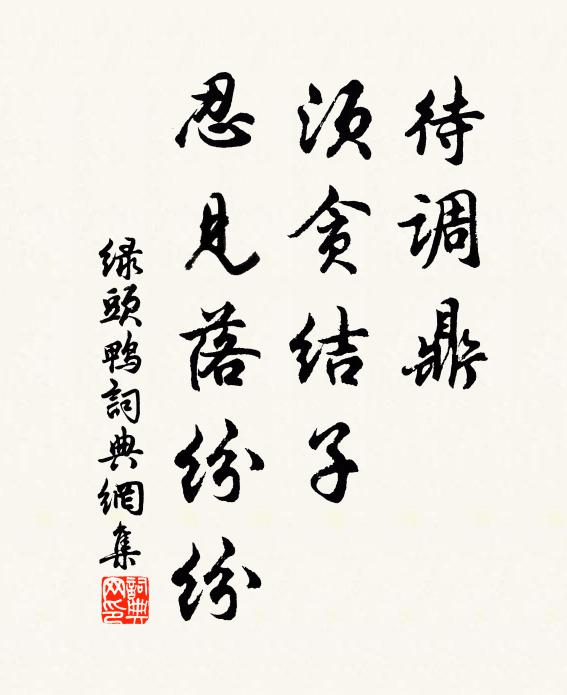 待调鼎
须贪结子
忍见落纷纷
绿头鸭詞典網集
詞典网印